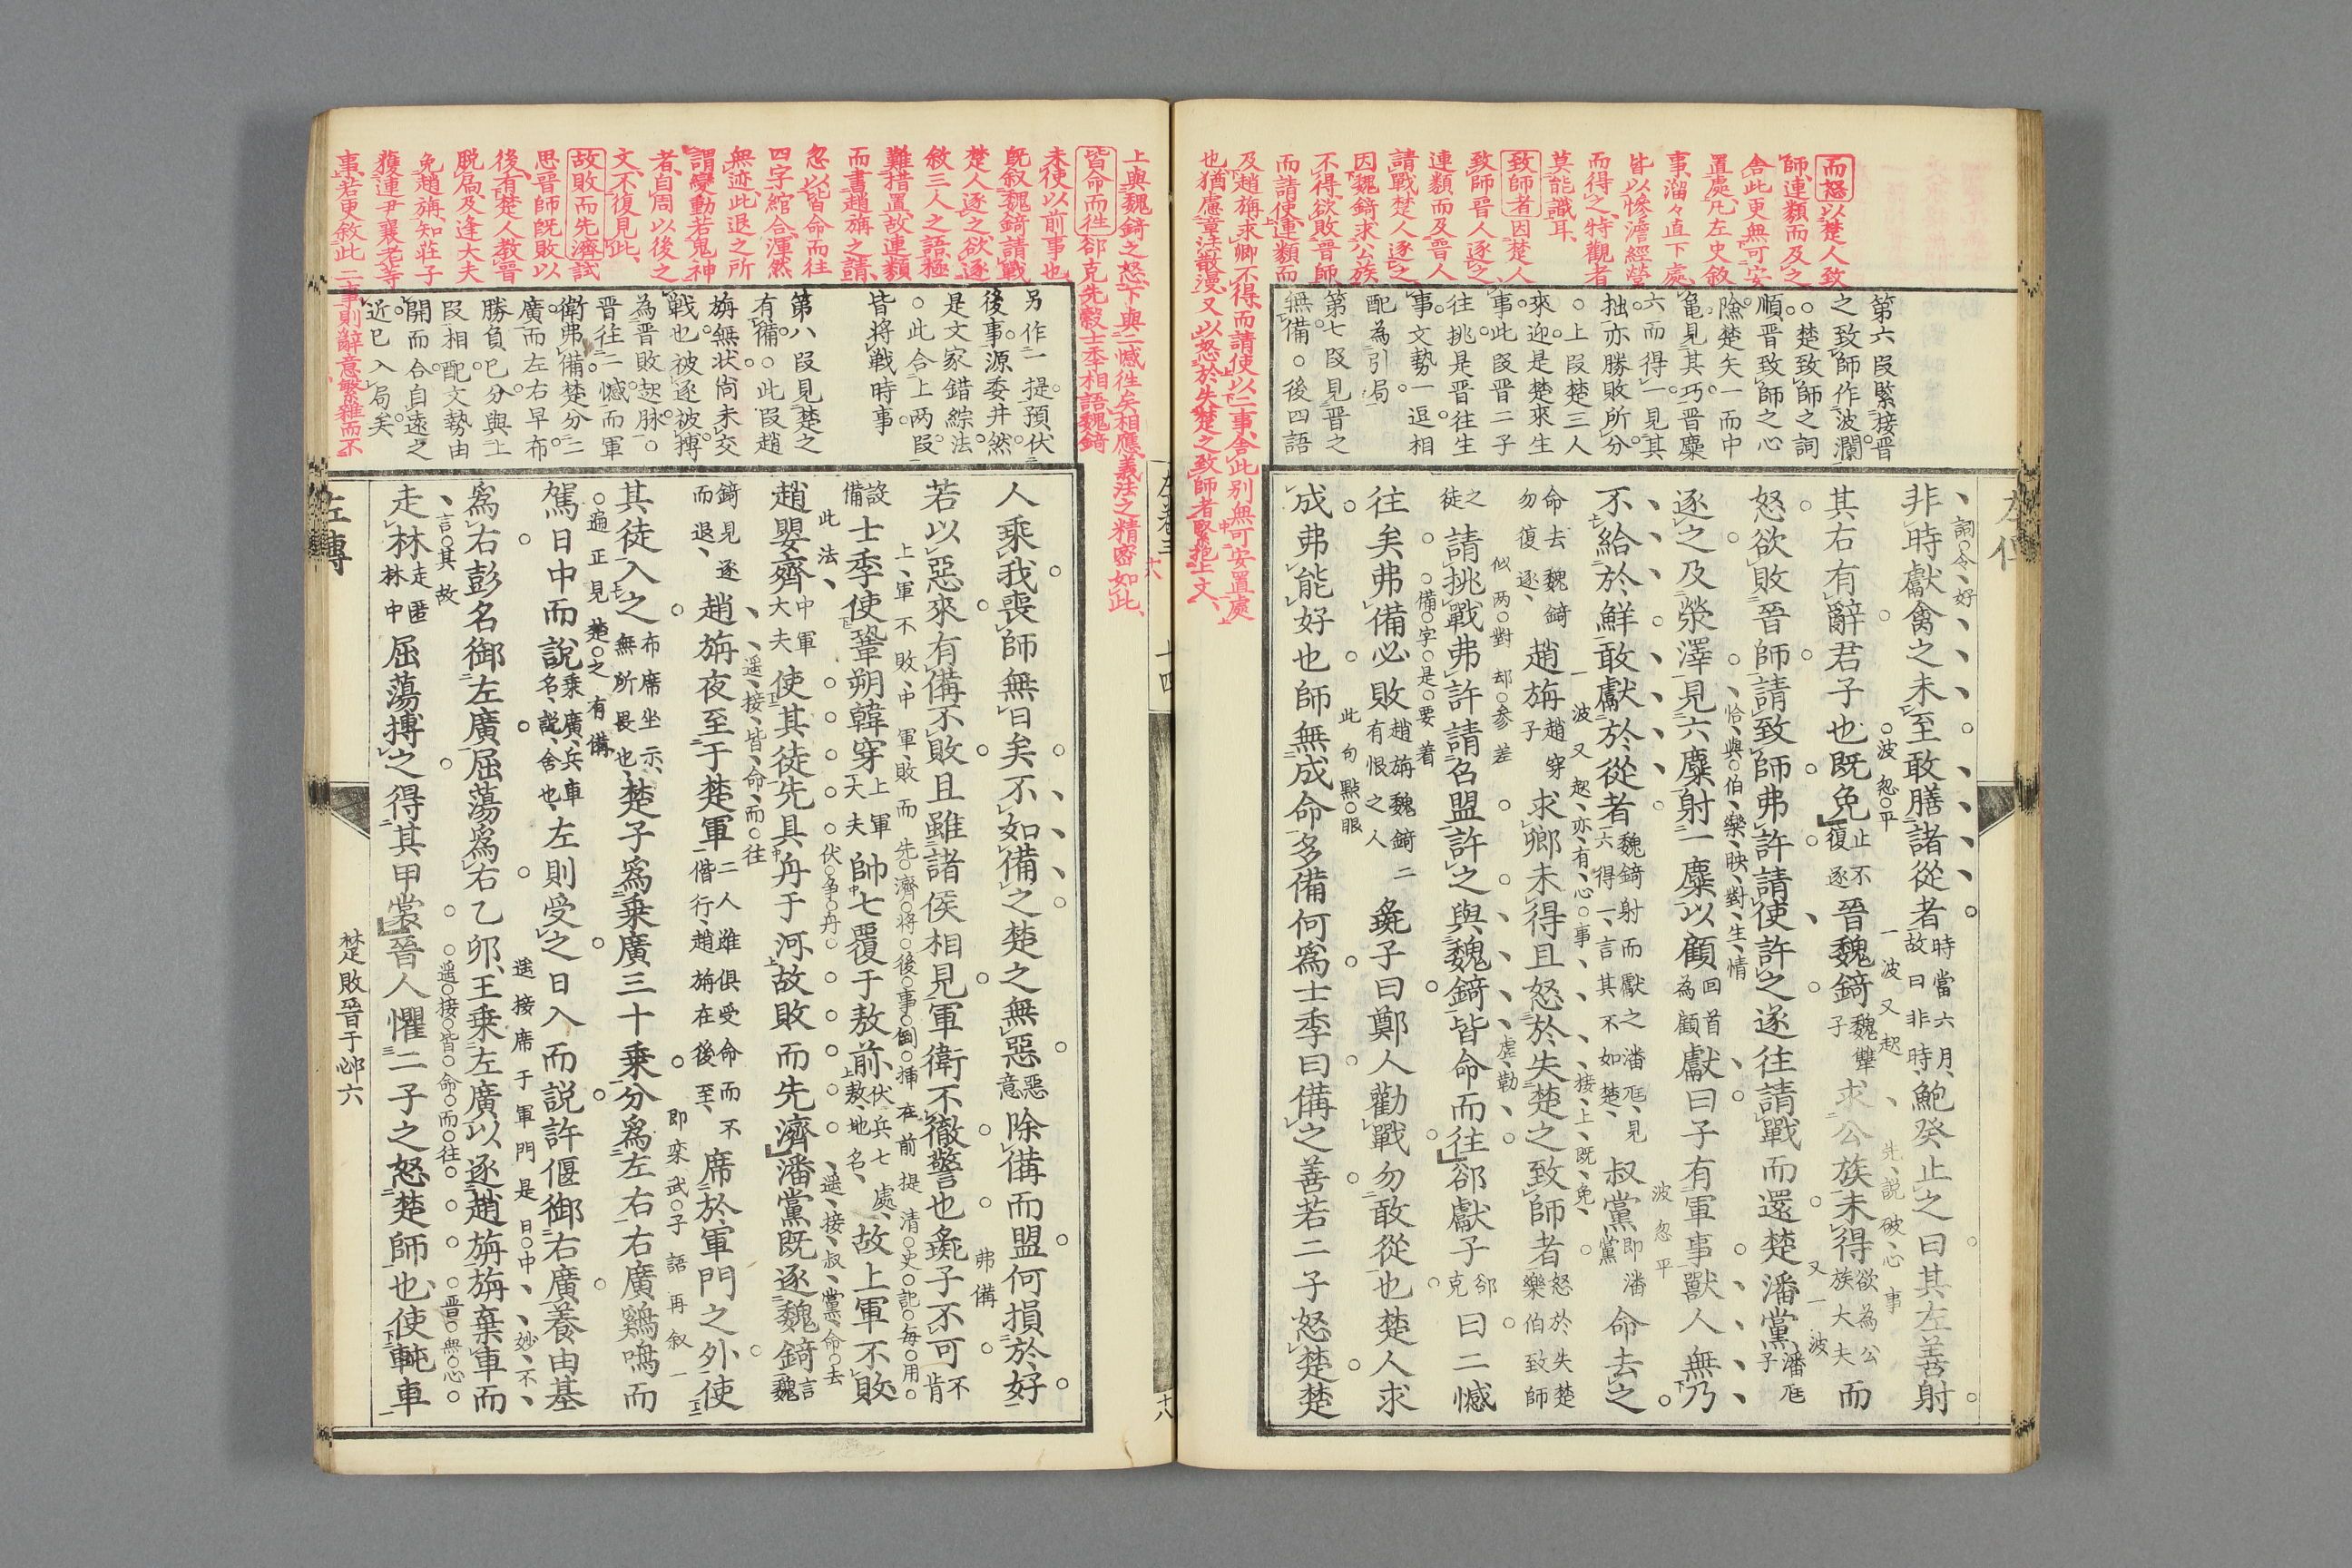 而怒以楚人致
師連類而及之
舎此更無可安
置處凢左史敘
事溜々直下處
皆以慘澹經營
而得之特觀者
莫能識耳
致師者因楚人
致師晉人逐之
連類而及晉人
請戰楚人逐之
因魏錡求公族
不得欲敗晉師
而請使連類而
及趙旃求卿不得而請使以二事舎此別無可安置處
也猶慮章法散漫又以怒於失楚之致師者緊抱上文
第六段緊接晉
之致師作波瀾
○楚致師之詞
順晉致師之心
險楚矢一而中
亀見其巧晉麋
六而得一見其
拙亦勝敗所分
○上段楚三人
來迎是楚來生
事此段晉二子
往挑是晉往生
事文勢一逗相
配為引局
第七段見晉之
無備○後四語
非時獻禽之未至敢膳諸從者時當六月故曰非時鮑癸止之曰其左善射
其右有辭君子也既免止不復逐晉魏錡魏犨子求公族未得欲為公族大夫而
怒欲敗晉師請致師弗許請使許之遂往請戰而還楚潘黨潘尫子
逐之及滎澤見六麋射一麋以顧回首為顧獻曰子有軍事獸人無乃
不給於鮮敢獻於從者魏錡射而獻之六得一言其不如楚潘尫見叔黨即潘黨命去之
命去魏錡勿復逐趙旃趙穿子求卿未得且怒於失楚之致師者怒於失楚樂伯致師
之徒請挑戰弗許請召盟許之與魏錡皆命而往郤獻子郤克曰二憾
往矣弗備必敗趙旃魏錡二有恨之人彘子曰鄭人勸戰勿敢從也楚人求
成弗能好也師無成命多備何爲士季曰備之善若二子怒楚楚
上與魏錡之怒下與二憾徃矣相應義法之精密如此
皆命而徃郤克先縠士季相語魏錡
未使以前事也
既叙魏錡請戰
楚人逐之欲逐
敘三人之語極
難措置故連類
而書趙旃之請
忽以皆命而往
四字綰合渾然
無迹此退之所
謂變動若鬼神
者自周以後之
文不復見此
故敗而先濟試
思晉師既敗以
後有楚人教晉
脫扃及逢大夫
免趙旃知莊子
獲連尹襄老等
事若更敘此二事則辭意繁雜而不
另作一提預伏
後事源委井然
是文家錯綜法
○此合上两段
皆將戰時事
第八段見楚之
有備○此段趙
旃無状尙未交
戰也被逐被搏
為晉敗起脉○
晉往二憾而軍
衛弗備楚分二
廣而左右早布
勝負已分與上
段相配文勢由
開而合自遠之
近已入局矣
人乘我喪師無日矣不如備之楚之無惡惡意除備而盟何損於好
若以惡來有備不敗且雖諸侯相見軍衛不徹警也彘子不可不肯
設備士季使鞏朔韓穿上軍大夫帥七覆于敖前伏兵七處敖地名故上軍不敗
趙嬰齊中軍大夫使其徒先具舟于河故敗而先濟潘黨既逐魏錡言魏
錡見逐而退趙旃夜至于楚軍二人雖俱受命而不偕行趙旃在後至席於軍門之外使
其徒入之布席坐示無所畏也楚子爲乗廣三十乗分爲左右右廣鷄鳴而
駕日中而說乗廣兵車名說舍也左則受之日入而説許偃御右廣養由基
爲右彭名御左廣屈蕩爲右乙卯王乗左廣以逐趙旃旃棄車而
走林走匿林中屈蕩搏之得其甲裳晉人懼二子之怒楚師也使軘車
左傳
楚敗晉于邲六